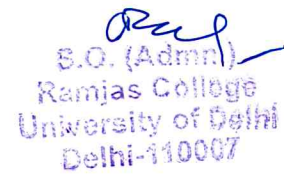 S.O. (Admn.)
Ramjas College
University of Delhi
Delhi-110007